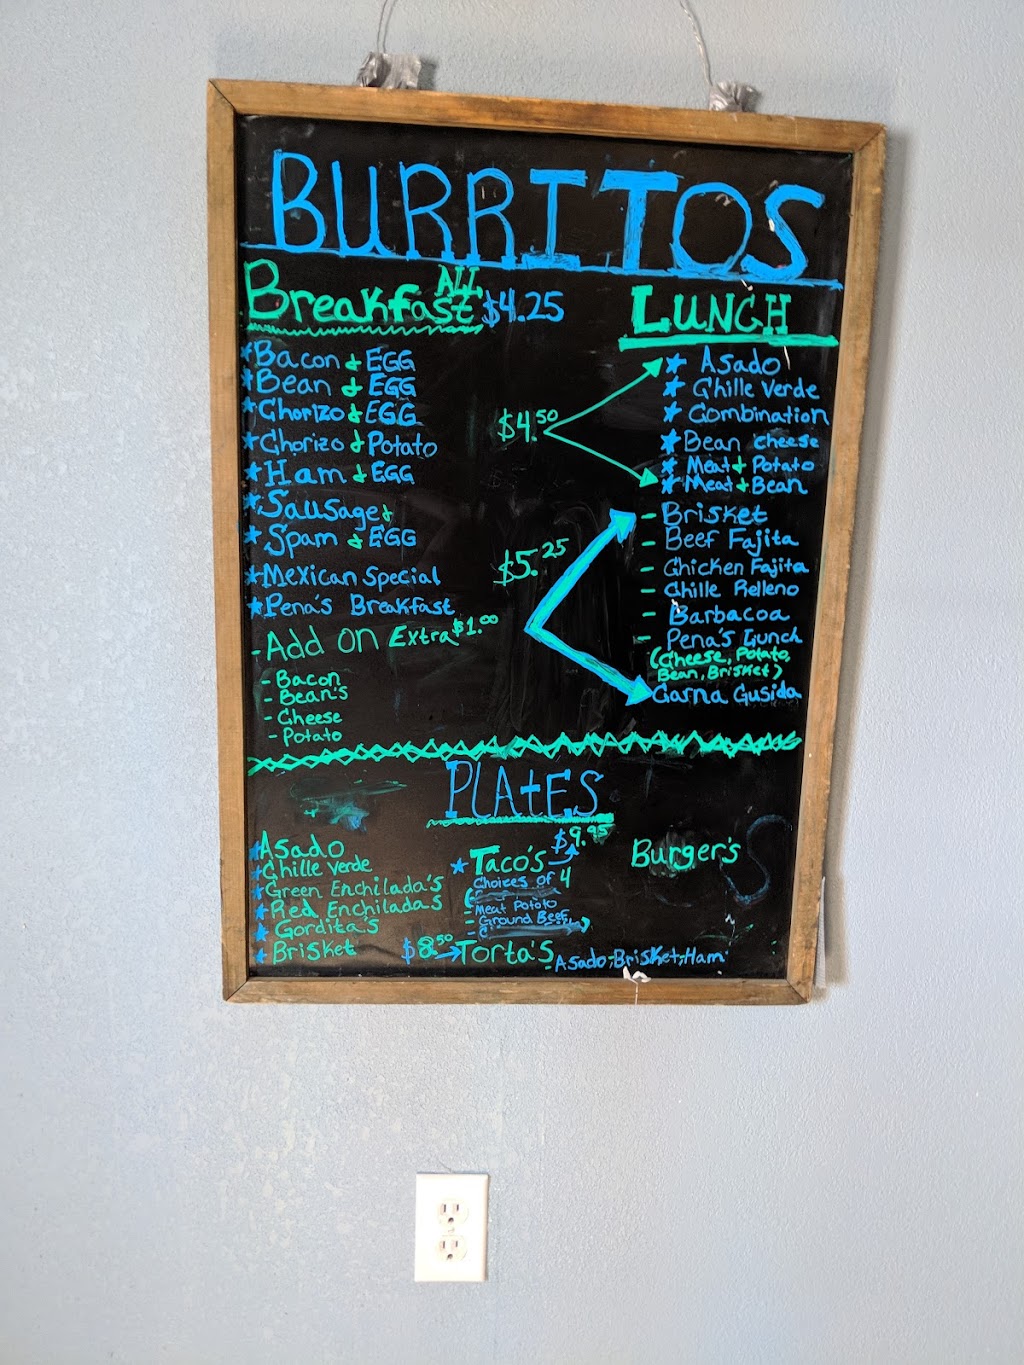 BURRITOS
Breakfast ALL $4.25
*Bacon & EGG
*Bean & EGG
*Chorizo & EGG
*Chorizo & Potato
*Ham & EGG
*Sausage &
*Spam & EGG
*Mexican Special
*Pena's Breakfast
-Add On Extra $1.00
- Bacon
- Bean's
- Cheese
- Potato
LUNCH
$4.50
* Asado
* Chille Verde
* Combination
* Bean cheese
* Meat & Potato
* Meat & Bean
$5.25
- Brisket
- Beef Fajita
- Chicken Fajita
- Chille Relleno
- Barbacoa
- Pena's Lunch
(Cheese, Potato,
Bean, Brisket)
Carna Gusida
PLAtES
*Asado
*Chille Verde
*Green Enchilada's
*Red Enchiladas
*Gordita's
*Brisket
$9.95
* Taco's
Choices of 4
- Meat Potato
- Ground Beef
$8.50 Torta's
-Asado,-Brisket,-Ham
Burger's